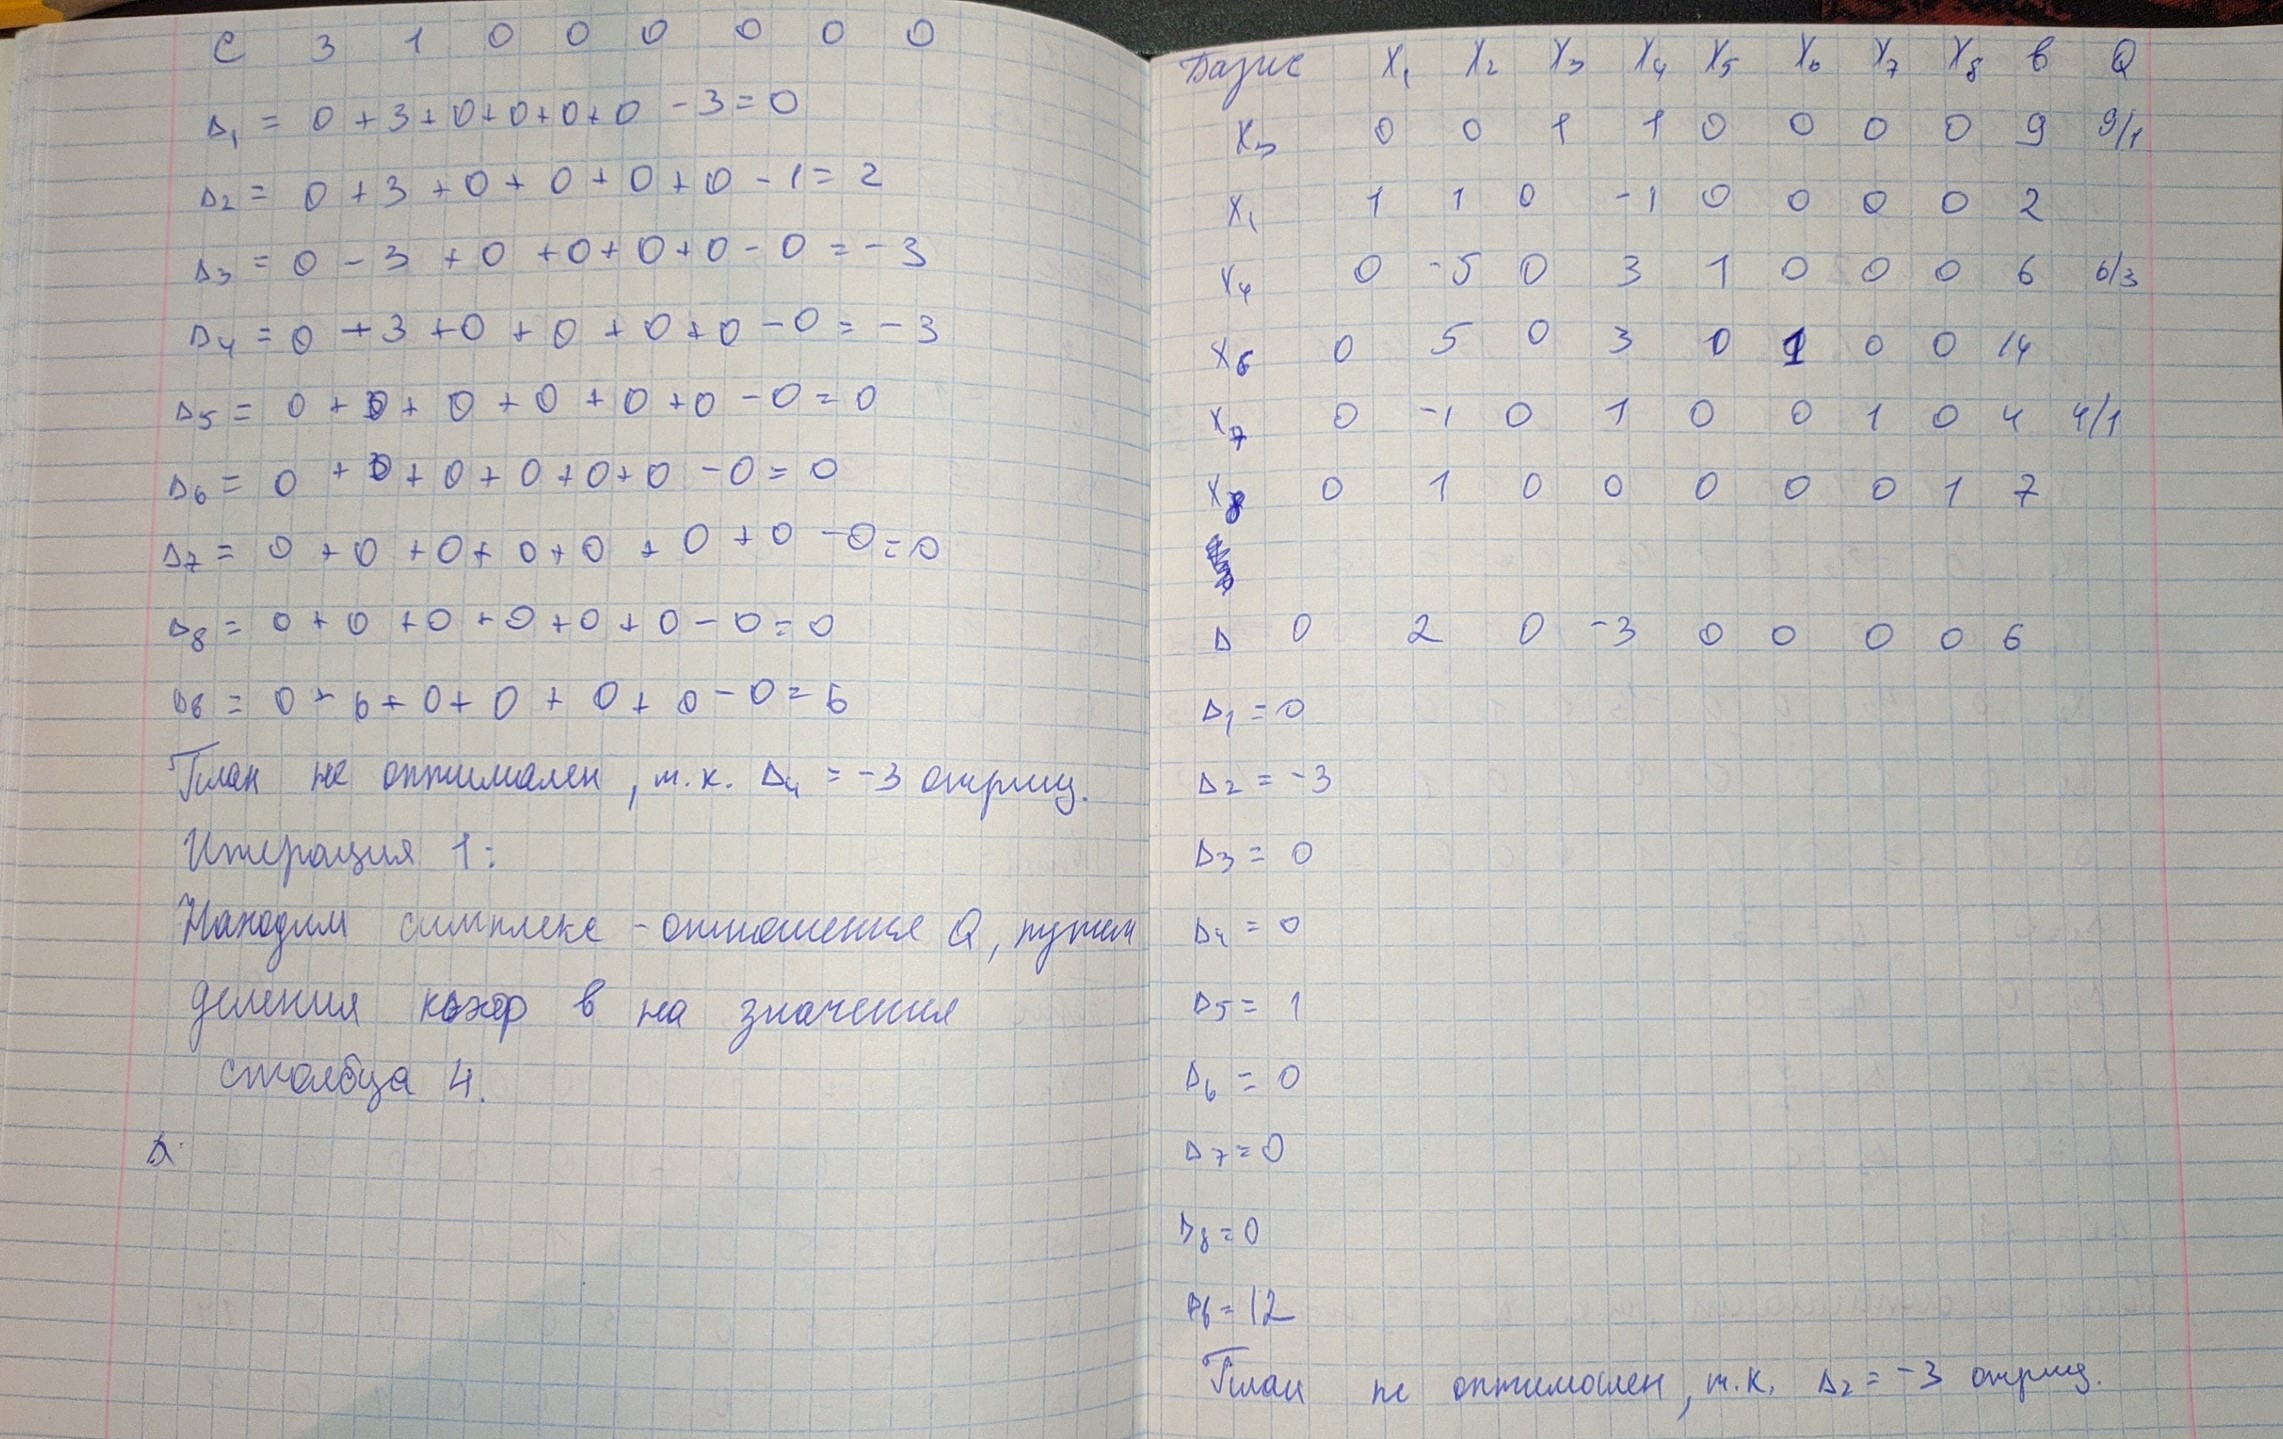 C 3 1 0 0 0 0 0 0
Δ₁ = 0 + 3 + 0 + 0 + 0 + 0 - 3 = 0
Δ₂ = 0 + 3 + 0 + 0 + 0 + 0 - 1 = 2
Δ₃ = 0 - 3 + 0 + 0 + 0 + 0 - 0 = -3
Δ₄ = 0 + 3 + 0 + 0 + 0 + 0 - 0 = -3
Δ₅ = 0 + 0 + 0 + 0 + 0 + 0 - 0 = 0
Δ₆ = 0 + 0 + 0 + 0 + 0 + 0 - 0 = 0
Δ₇ = 0 + 0 + 0 + 0 + 0 + 0 + 0 - 0 = 0
Δ₈ = 0 + 0 + 0 + 0 + 0 + 0 - 0 = 0
Δв = 0 + 6 + 0 + 0 + 0 + 0 - 0 = 6
План не оптимален, т.к. Δ₄ = -3 отриц.
Итерация 1:
Находим симплекс-отношения Q, путем
деления коэф в на значения
столбца 4.
Δ
Базис X₁ X₂ X₃ X₄ X₅ X₆ X₇ X₈ в Q
X₃ 0 0 1 1 0 0 0 0 9 9/1
X₁ 1 1 0 -1 0 0 0 0 2
X₄ 0 -5 0 3 1 0 0 0 6 6/3
X₆ 0 5 0 3 0 1 0 0 14
X₇ 0 -1 0 1 0 0 1 0 4 4/1
X₈ 0 1 0 0 0 0 0 1 7
Δ 0 2 0 -3 0 0 0 0 6
Δ₁ = 0
Δ₂ = -3
Δ₃ = 0
Δ₄ = 0
Δ₅ = 1
Δ₆ = 0
Δ₇ = 0
Δ₈ = 0
Δв = 12
План не оптимален, т.к. Δ₂ = -3 отриц.